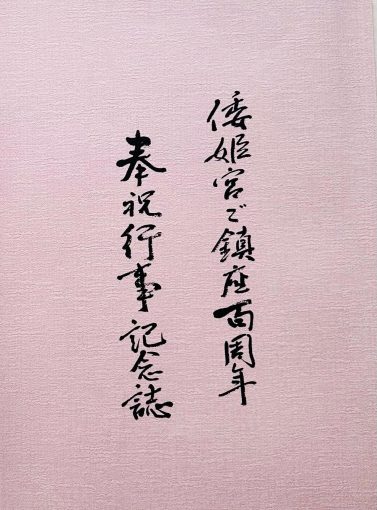 倭姫宮ご鎮座百周年
奉祝行事記念誌